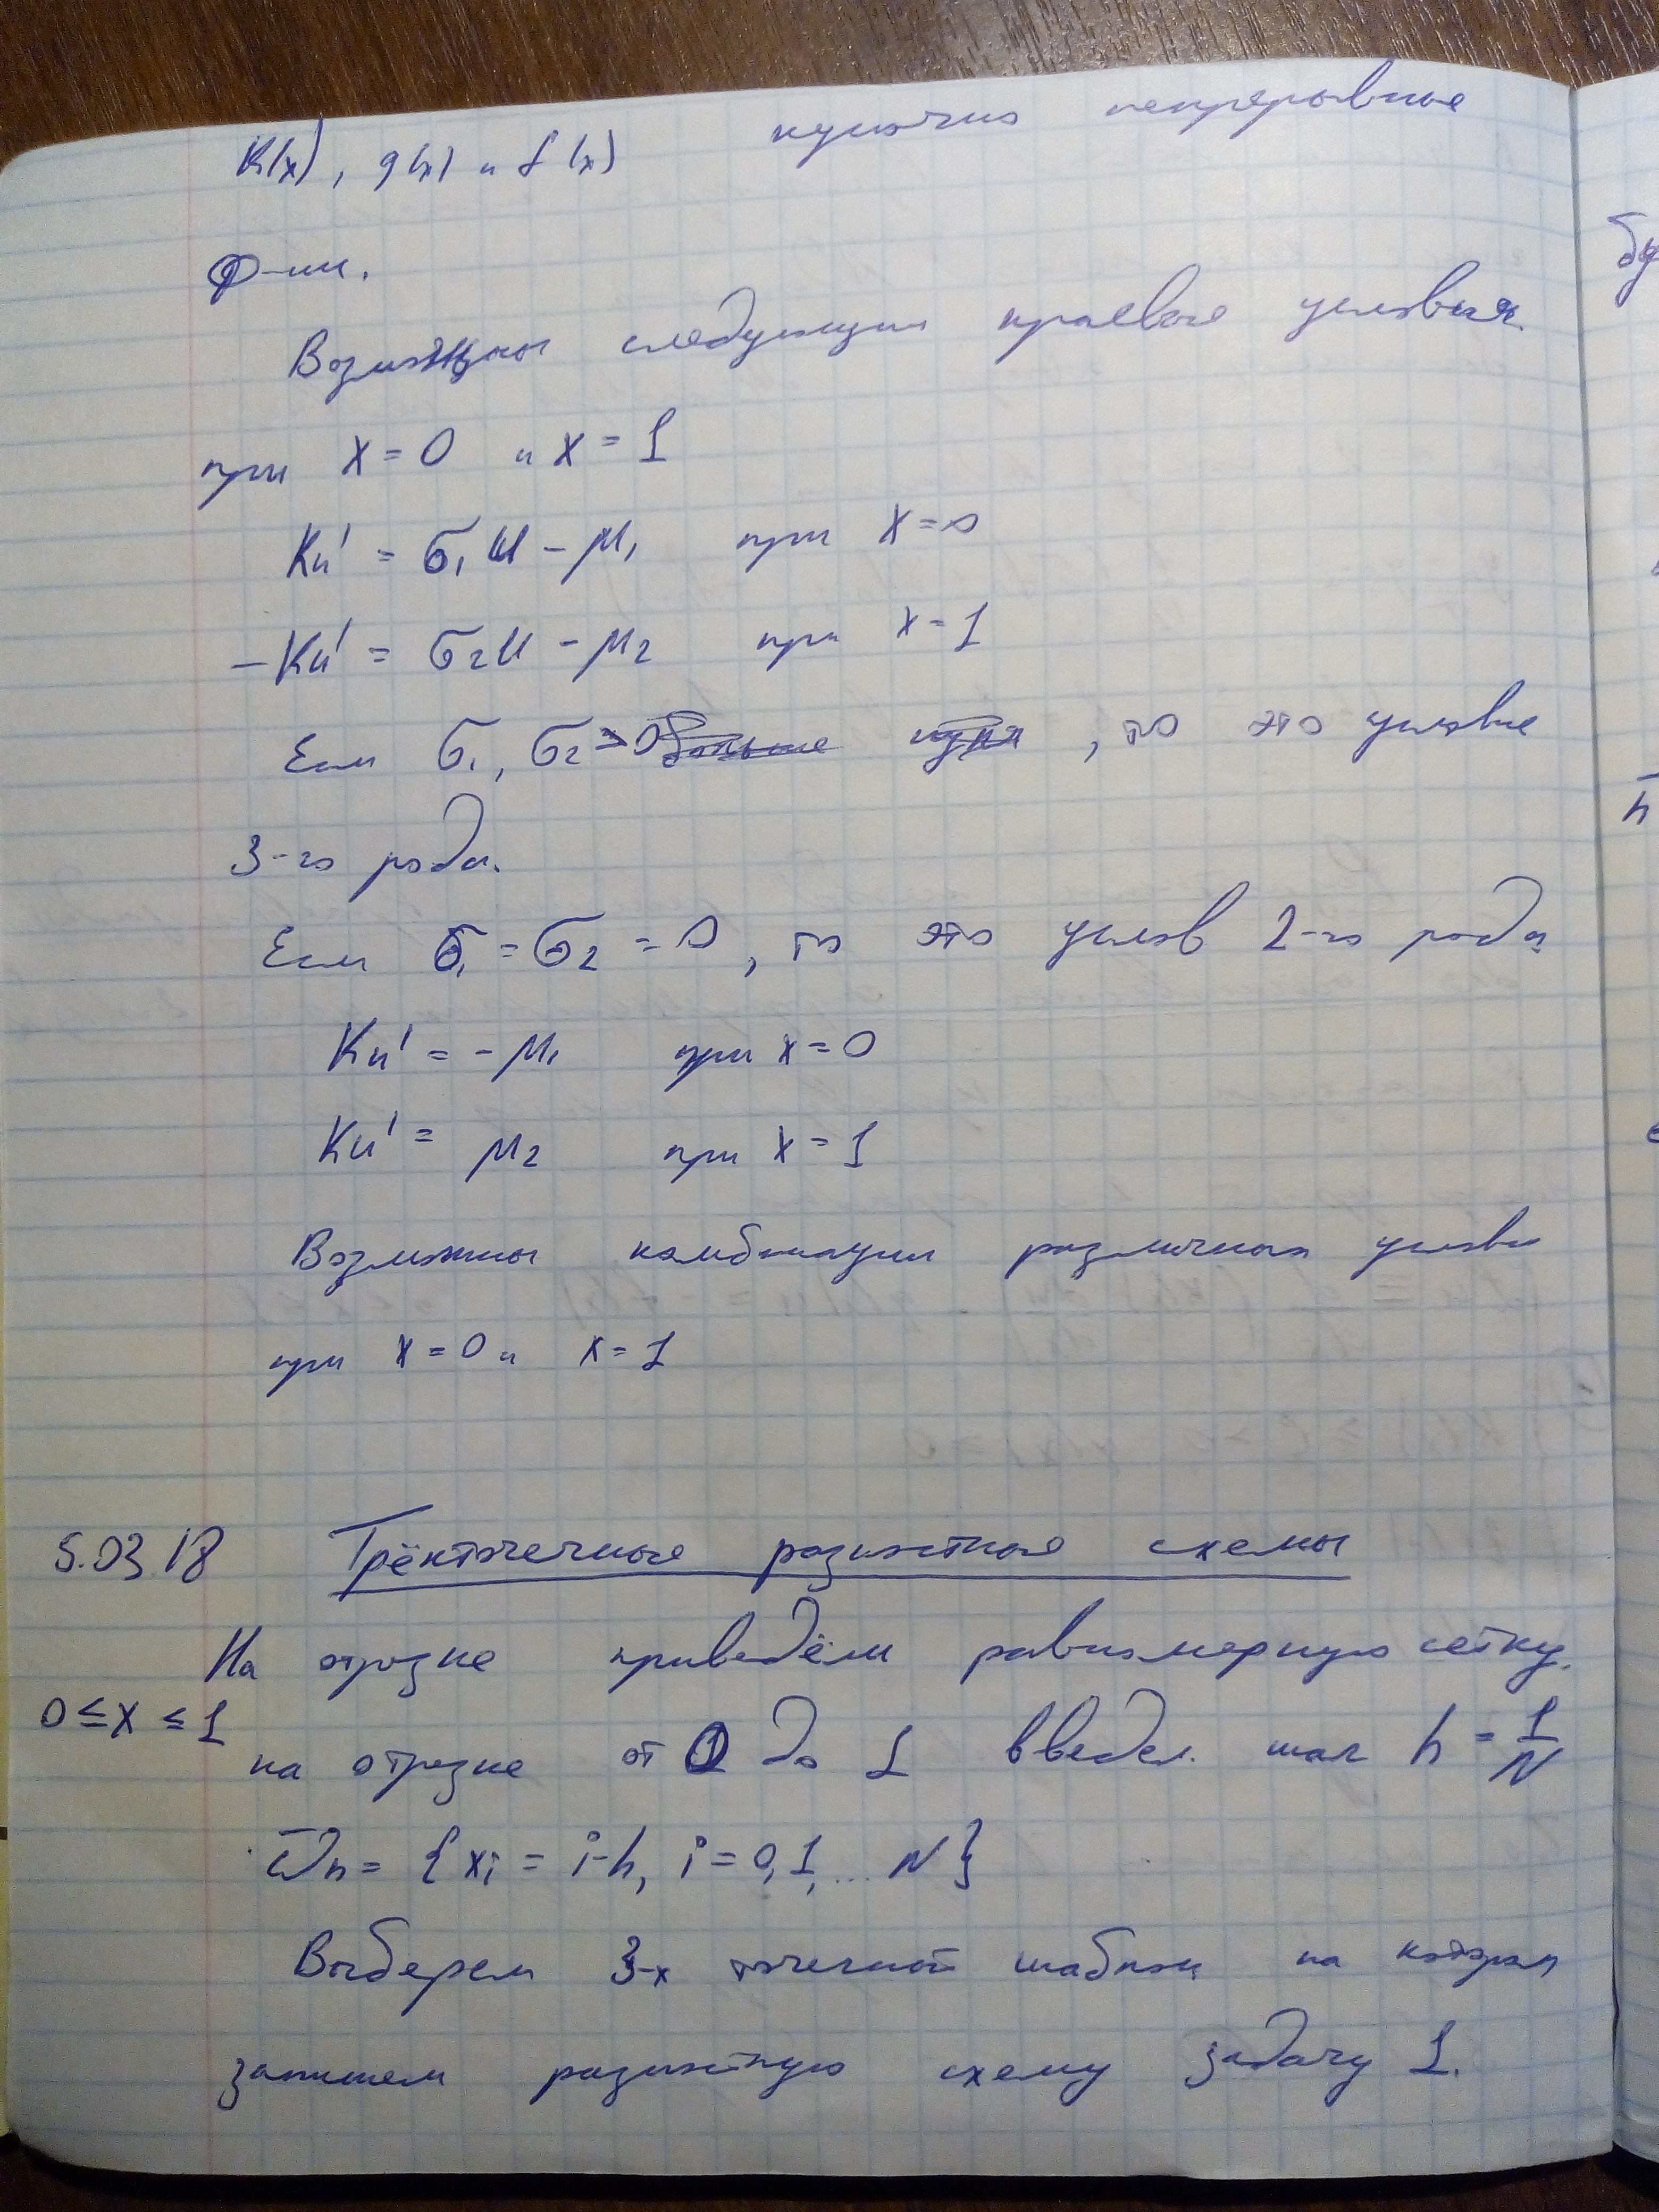 K(x), q(x) и f(x) кусочно непрерывные
ф-ии.
Возможны следующии краевые условия.
при x = 0 и x = 1
Ku' = σ₁u - μ₁ при x = 0
-Ku' = σ₂u - μ₂ при x = 1
Если σ₁, σ₂ > 0 больше нуля, то это условие
3-го рода.
Если σ₁ = σ₂ = 0, то это услов 2-го рода
Ku' = -μ₁ при x = 0
Ku' = μ₂ при x = 1
Возможны комбинации различных услови
при x = 0 и x = 1
5.03.18 Трёхточечные разностные схемы
На отрезке приведём равномерную сетку.
0 ≤ x ≤ 1
на отрезке от 0 до 1 введем. шаг h = 1/N
ω̄h = {xi = i·h, i = 0, 1, ... N}
Выберем 3-х точечный шаблон на котором
запишем разностную схему задачу 1.